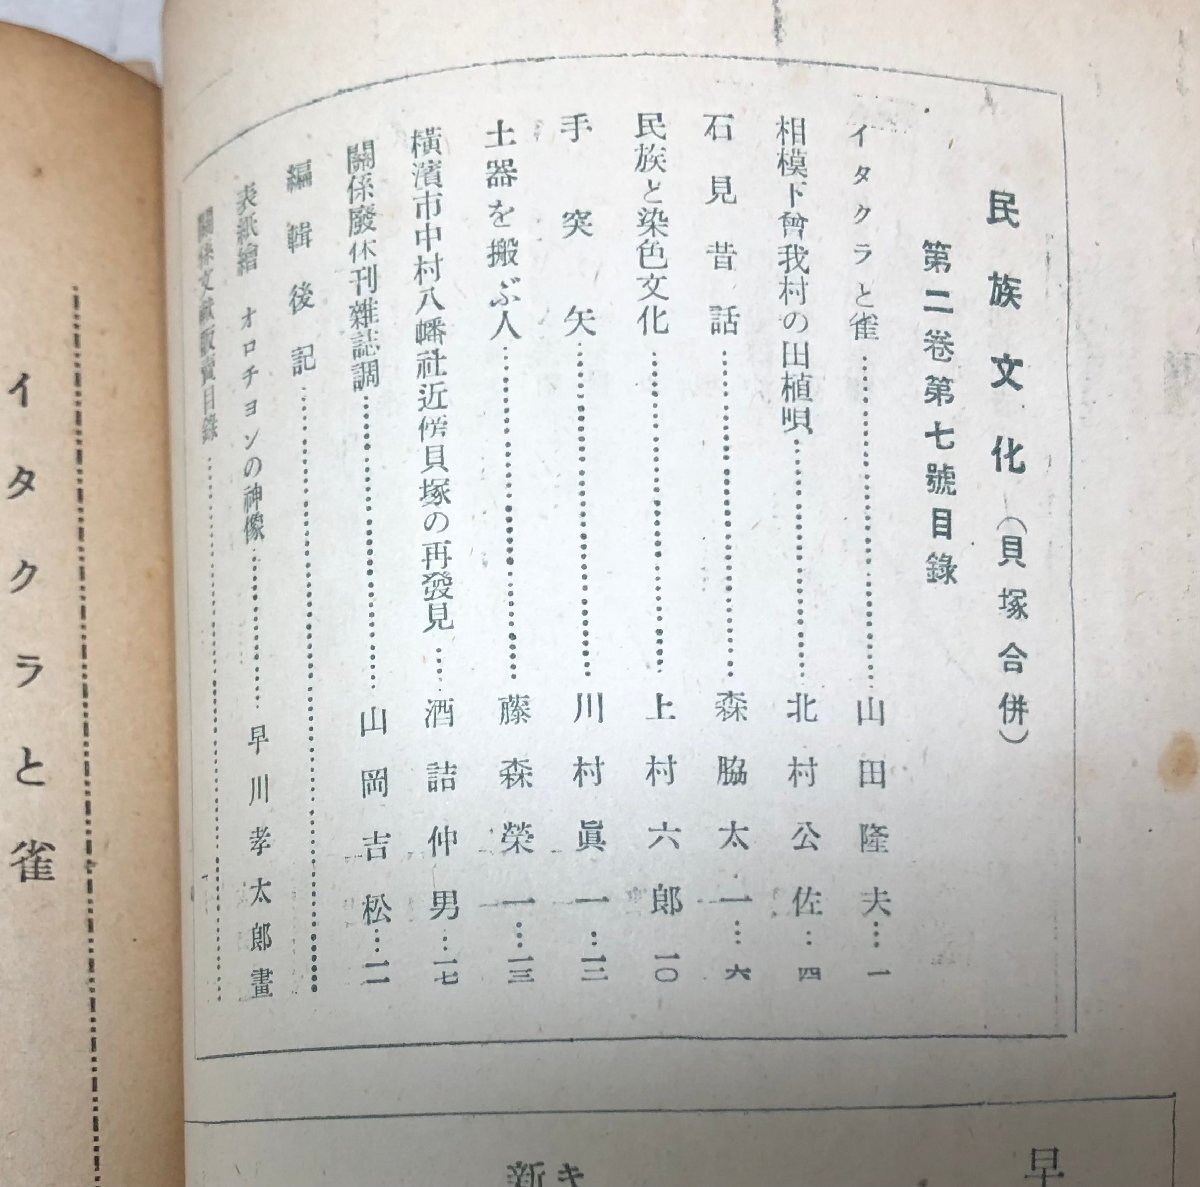 民族文化（貝塚合併）
第二卷第七號目錄
イタクラと雀…………山田隆夫…一
相模下曾我村の田植唄…………北村公佐…四
石見昔話…………森脇太一…六
民族と染色文化…………上村六郎 一〇
手突矢…………川村眞一…一二
土器を搬ぶ人…………藤森榮一…一三
橫濱市中村八幡社近傍貝塚の再發見……酒詰仲男…一七
關係廢休刊雜誌調…………山岡吉松…二一
編輯後記…………
表紙繪 オロチヨンの神像…………早川孝太郎畫
關係文獻販賣目錄…………
イタクラと雀
早
新き